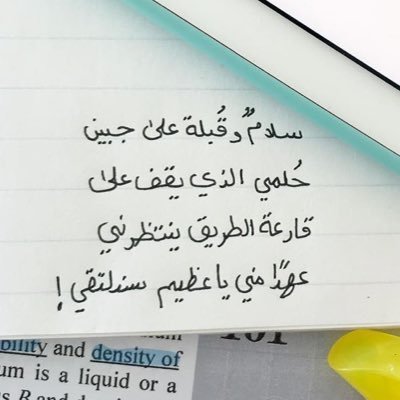 سلامٌ وقُبلة على جبين
حُلمي الذي يقف على
قارعة الطريق ينتظرني
عهدًا مني يا عظيم سنلتقي!
101
bility and density of
um is a liquid or a